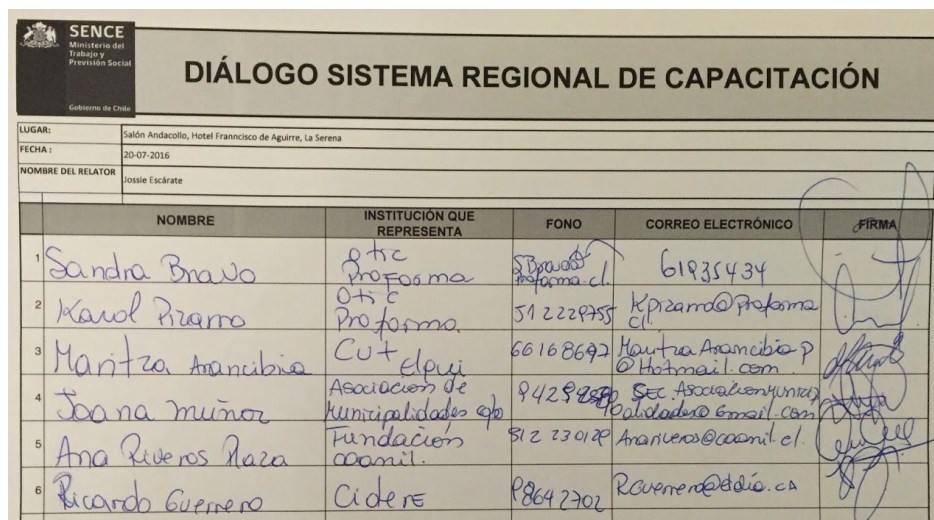 SENCE
Ministerio del
Trabajo y
Previsión Social
Gobierno de Chile
DIÁLOGO SISTEMA REGIONAL DE CAPACITACIÓN
LUGAR: Salón Andacollo, Hotel Franncisco de Aguirre, La Serena
FECHA : 20-07-2016
NOMBRE DEL RELATOR Jossie Escárate
NOMBRE INSTITUCIÓN QUE REPRESENTA FONO CORREO ELECTRÓNICO FIRMA
1 Sandra Bravo Otic Proforma SBravo@proforma.cl. 61935434
2 Karol Pizarro Otic Proforma. 512229755 Kpizarro@Proforma cl.
3 Maritza Arancibia Cut Elqui 66168692 Maritza Arancibia P @Hotmail.com
4 Joana muñoz Asociacion de Municipalidades SEC. Asociacionmunici palidades@Gmail.com
5 Ana Riveros Plaza Fundación coanil. Anariveros@coanil.cl.
6 Ricardo Guerrero Cidere 98642702